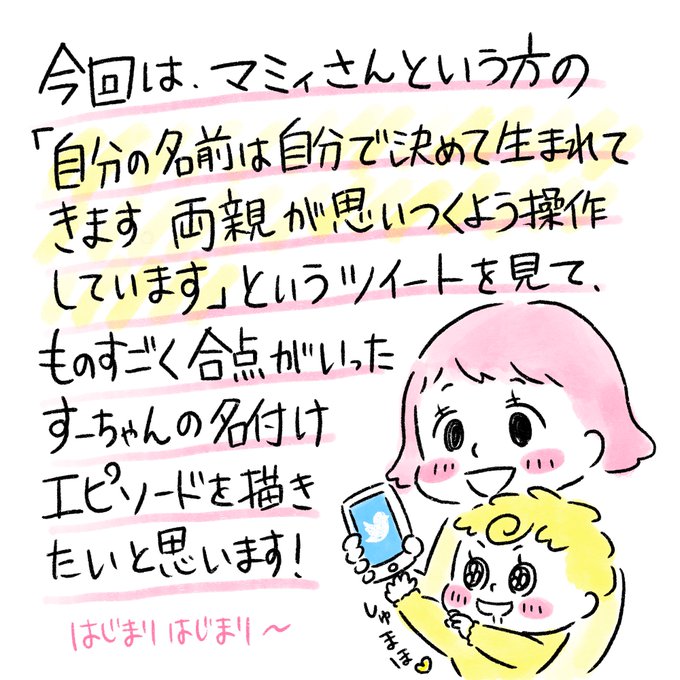 今回は、マミィさんという方の
「自分の名前は自分で決めて生まれて
きます 両親が思いつくよう操作
しています」というツイートを見て、
ものすごく合点がいった
すーちゃんの名付け
エピソードを描き
たいと思います!
はじまりはじまり〜
しゅまほ